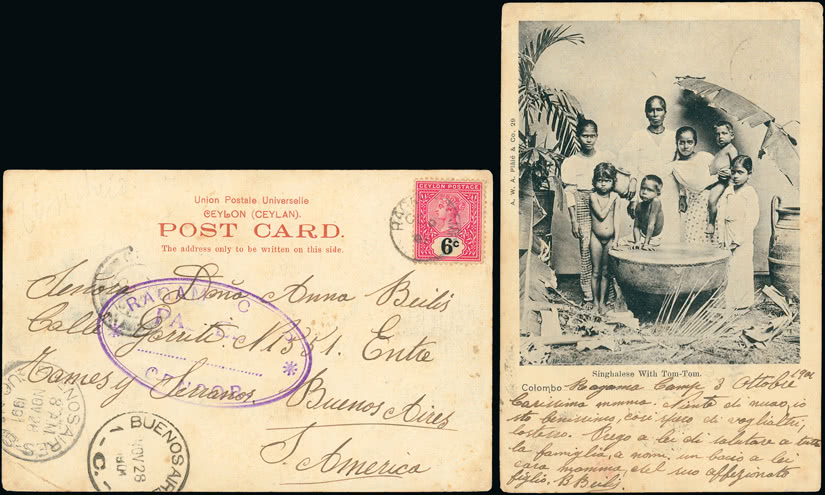 Union Postale Universelle
CEYLON (CEYLAN).
POST CARD.
The address only to be written on this side.
CEYLON POSTAGE
6c
Senora Doña Anna Beili
Calle Gorriti N 1351. Entre
Serranos.
Buenos Aires
S. America
RAGAMA C
PA
CENSOR
BUENOS AIRES
NOV 28
1
C.
BUENOS AIRES
8 AM
NOV 28
1901
A. W. A. Plâté & Co. 29
Singhalese With Tom-Tom.
Colombo Ragama Camp 3 Ottobre 1901
Carissima mamma. Niente di nuovo, io
sto benissimo, così spero di voglialtri,
lostesso. Prego a lei di salutare a tutta
la famiglia, a nomi. un bacio a lei
cara mamma, del suo affezionato
figlio. B Beili